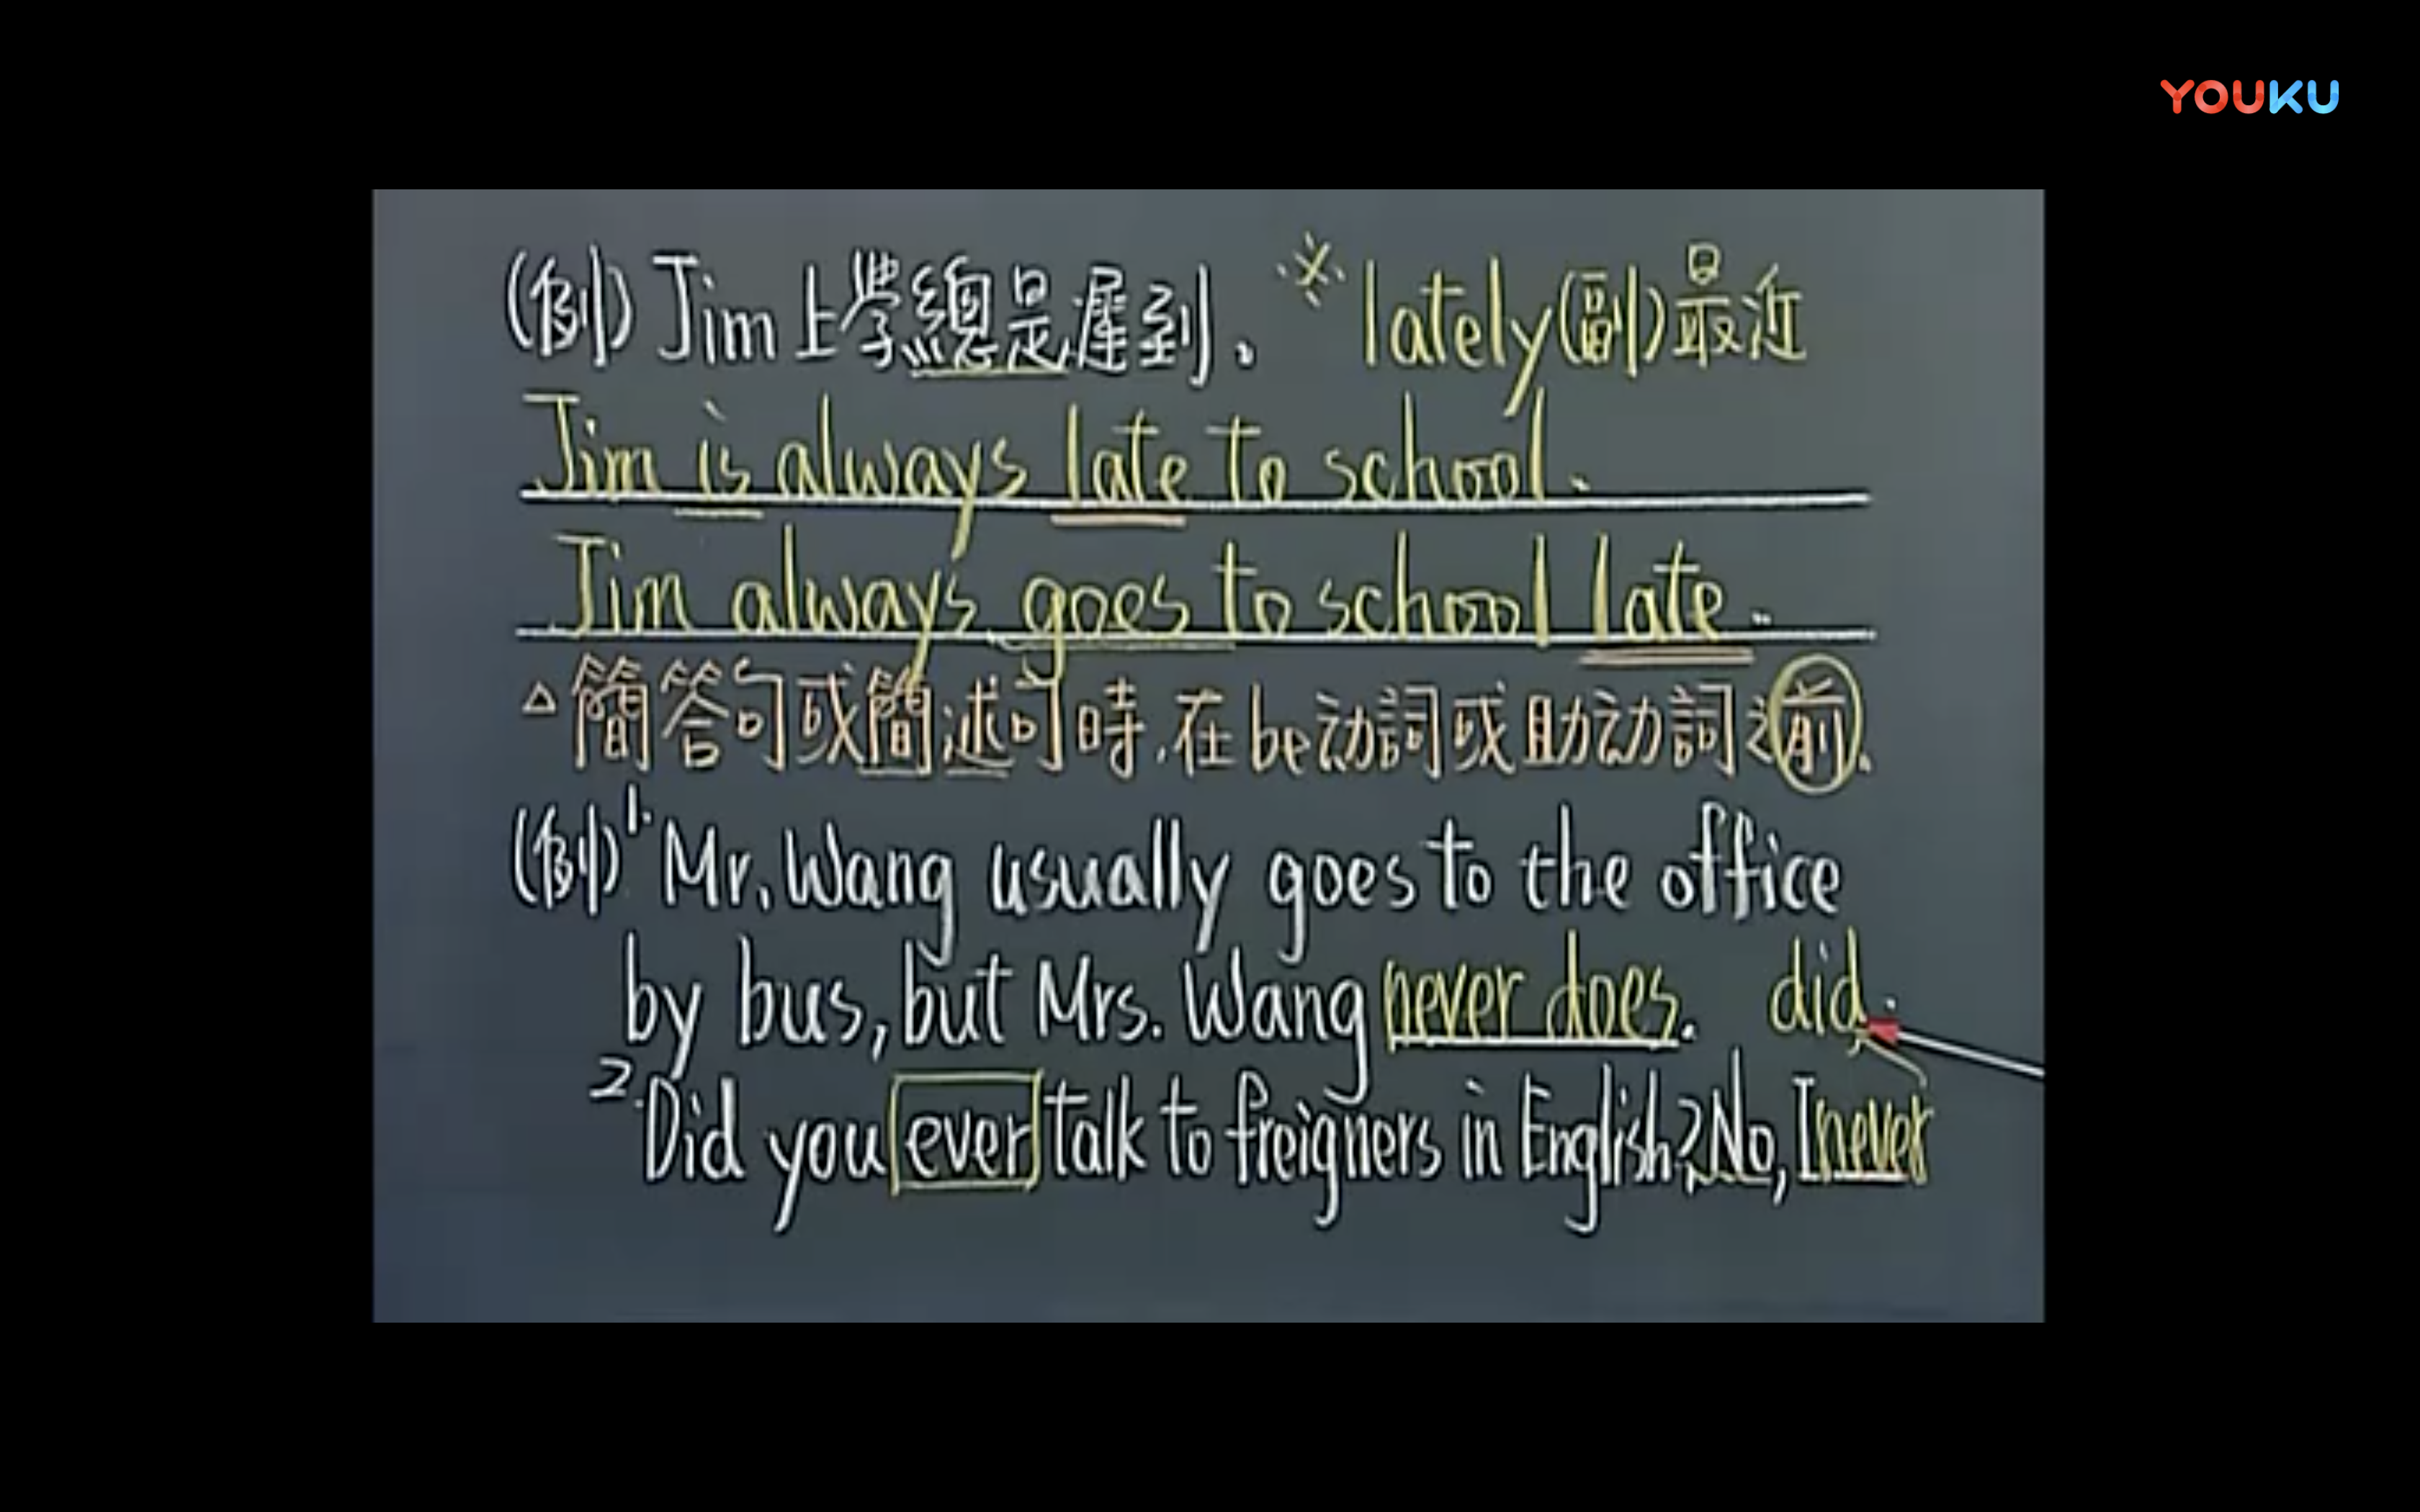 YOUKU
(例) Jim上學總是遲到。 ※ lately(副)最近
Jim is always late to school.
Jim always goes to school late.
△簡答句或簡述句時,在be动詞或助动詞之前.
(例)1. Mr. Wang usually goes to the office
by bus, but Mrs. Wang never does. did.
2. Did you ever talk to freigners in English? No, I never